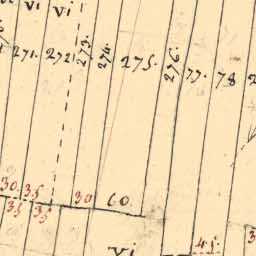 vi vi
271. 272 273. 274. 275. 276. 77. 78
30. 35 30 60.
35 35
vi 45.